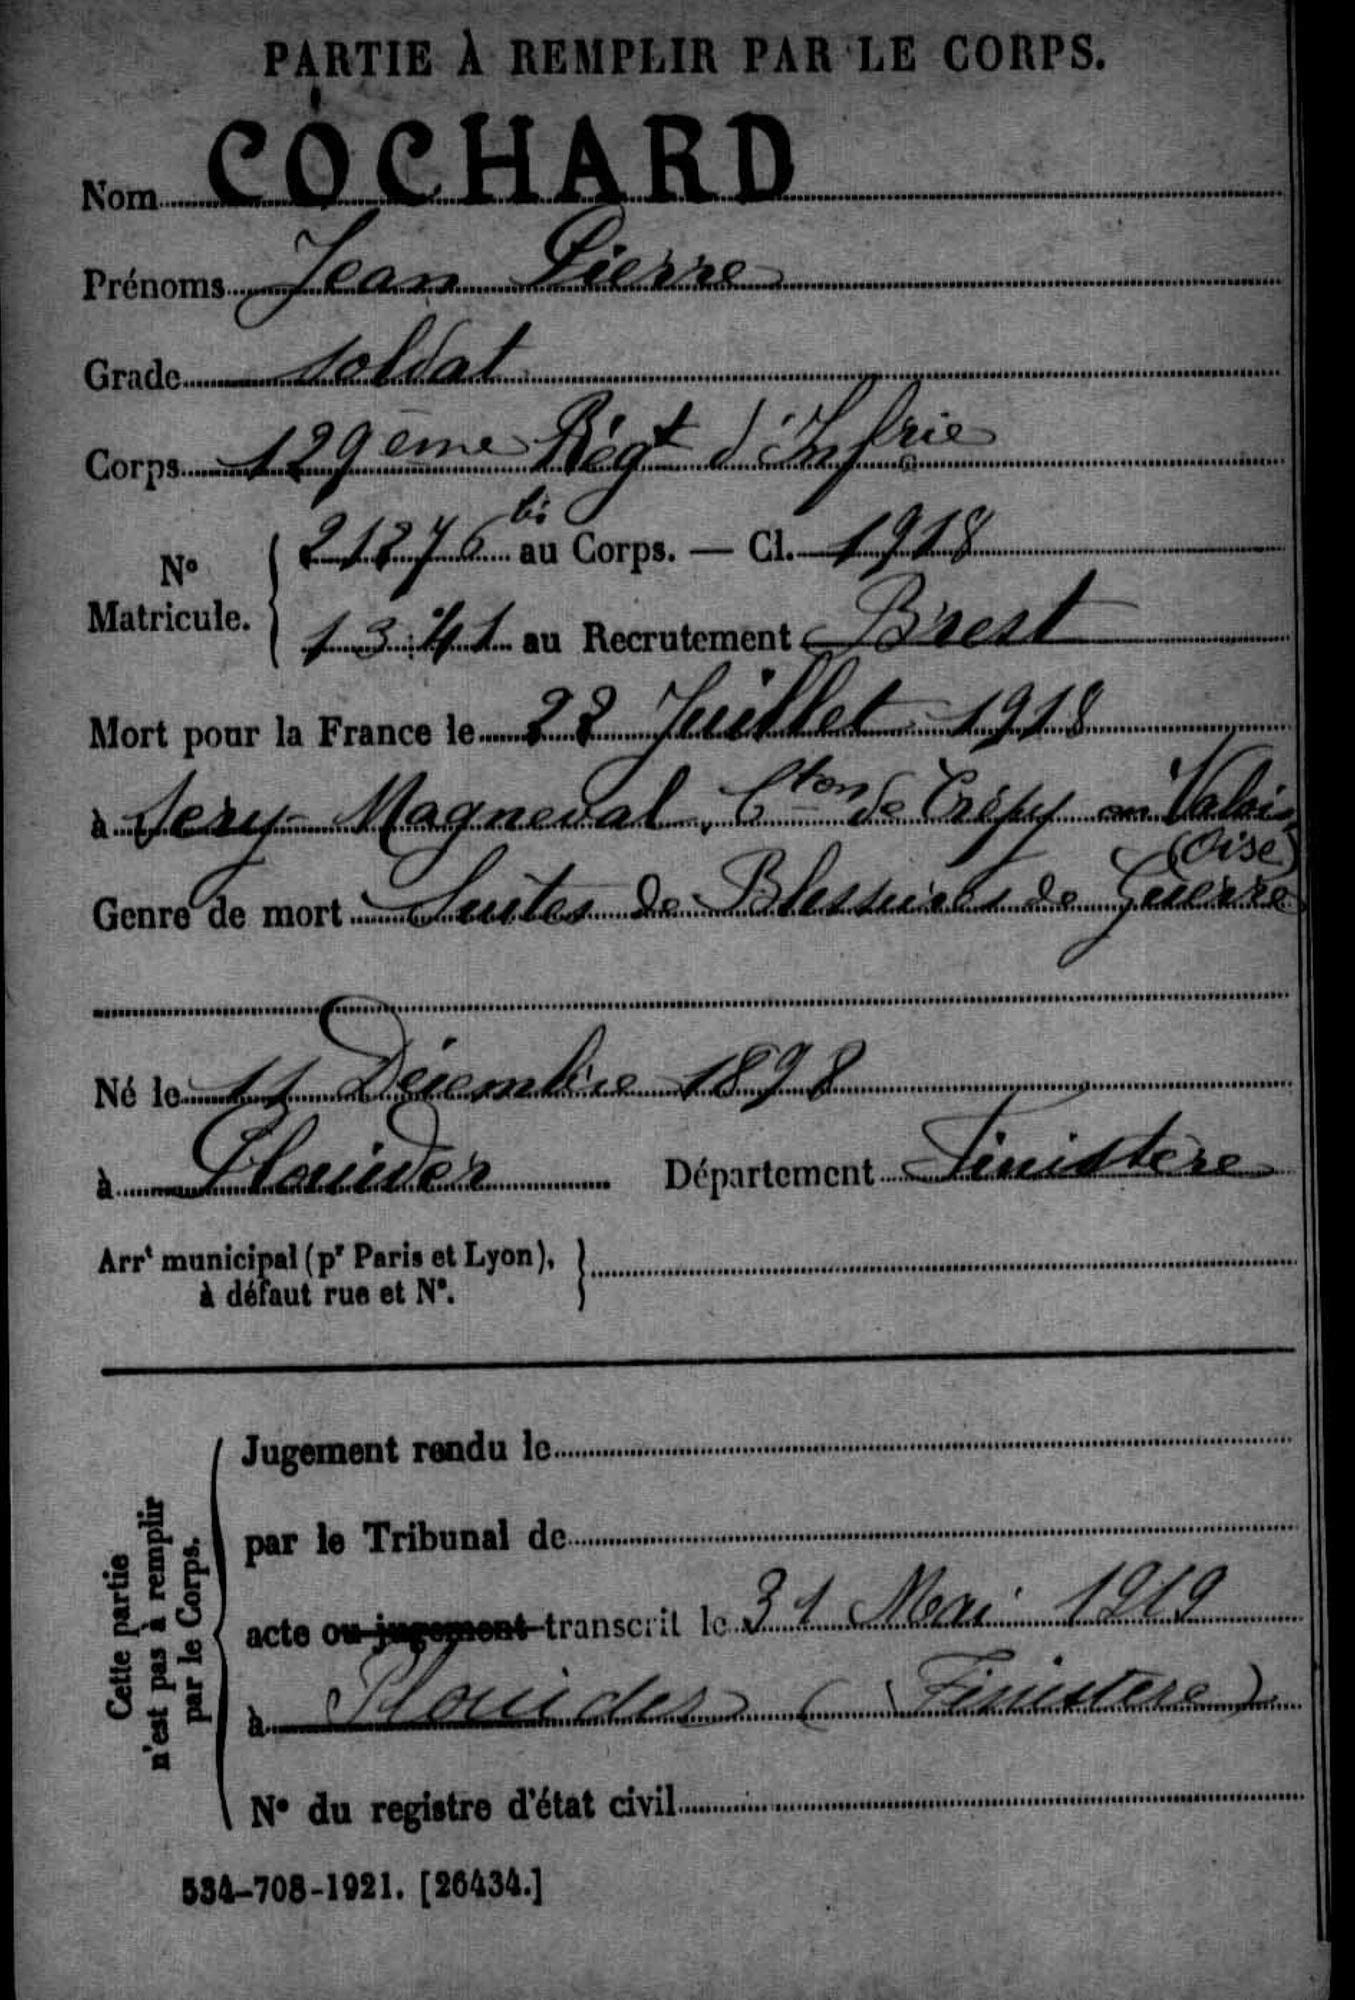 PARTIE À REMPLIR PAR LE CORPS.
Nom COCHARD
Prénoms Jean Pierre
Grade soldat
Corps 129ème Régt d'Infrie
N° Matricule. { 21276 bis au Corps. — Cl. 1918
1341 au Recrutement Brest
Mort pour la France le 22 Juillet 1918
à Sery-Magneval, Cton de Crépy en Valois (Oise)
Genre de mort Suites de Blessures de Guerre
Né le 11 Décembre 1898
à Plouider Département Finistère
Arrt municipal (pr Paris et Lyon), }
à défaut rue et N°.
Cette partie n'est pas à remplir par le Corps.
Jugement rendu le
par le Tribunal de
acte ou jugement transcrit le 31 Mai 1919
à Plouider (Finistère)
N° du registre d'état civil
534-708-1921. [26434.]